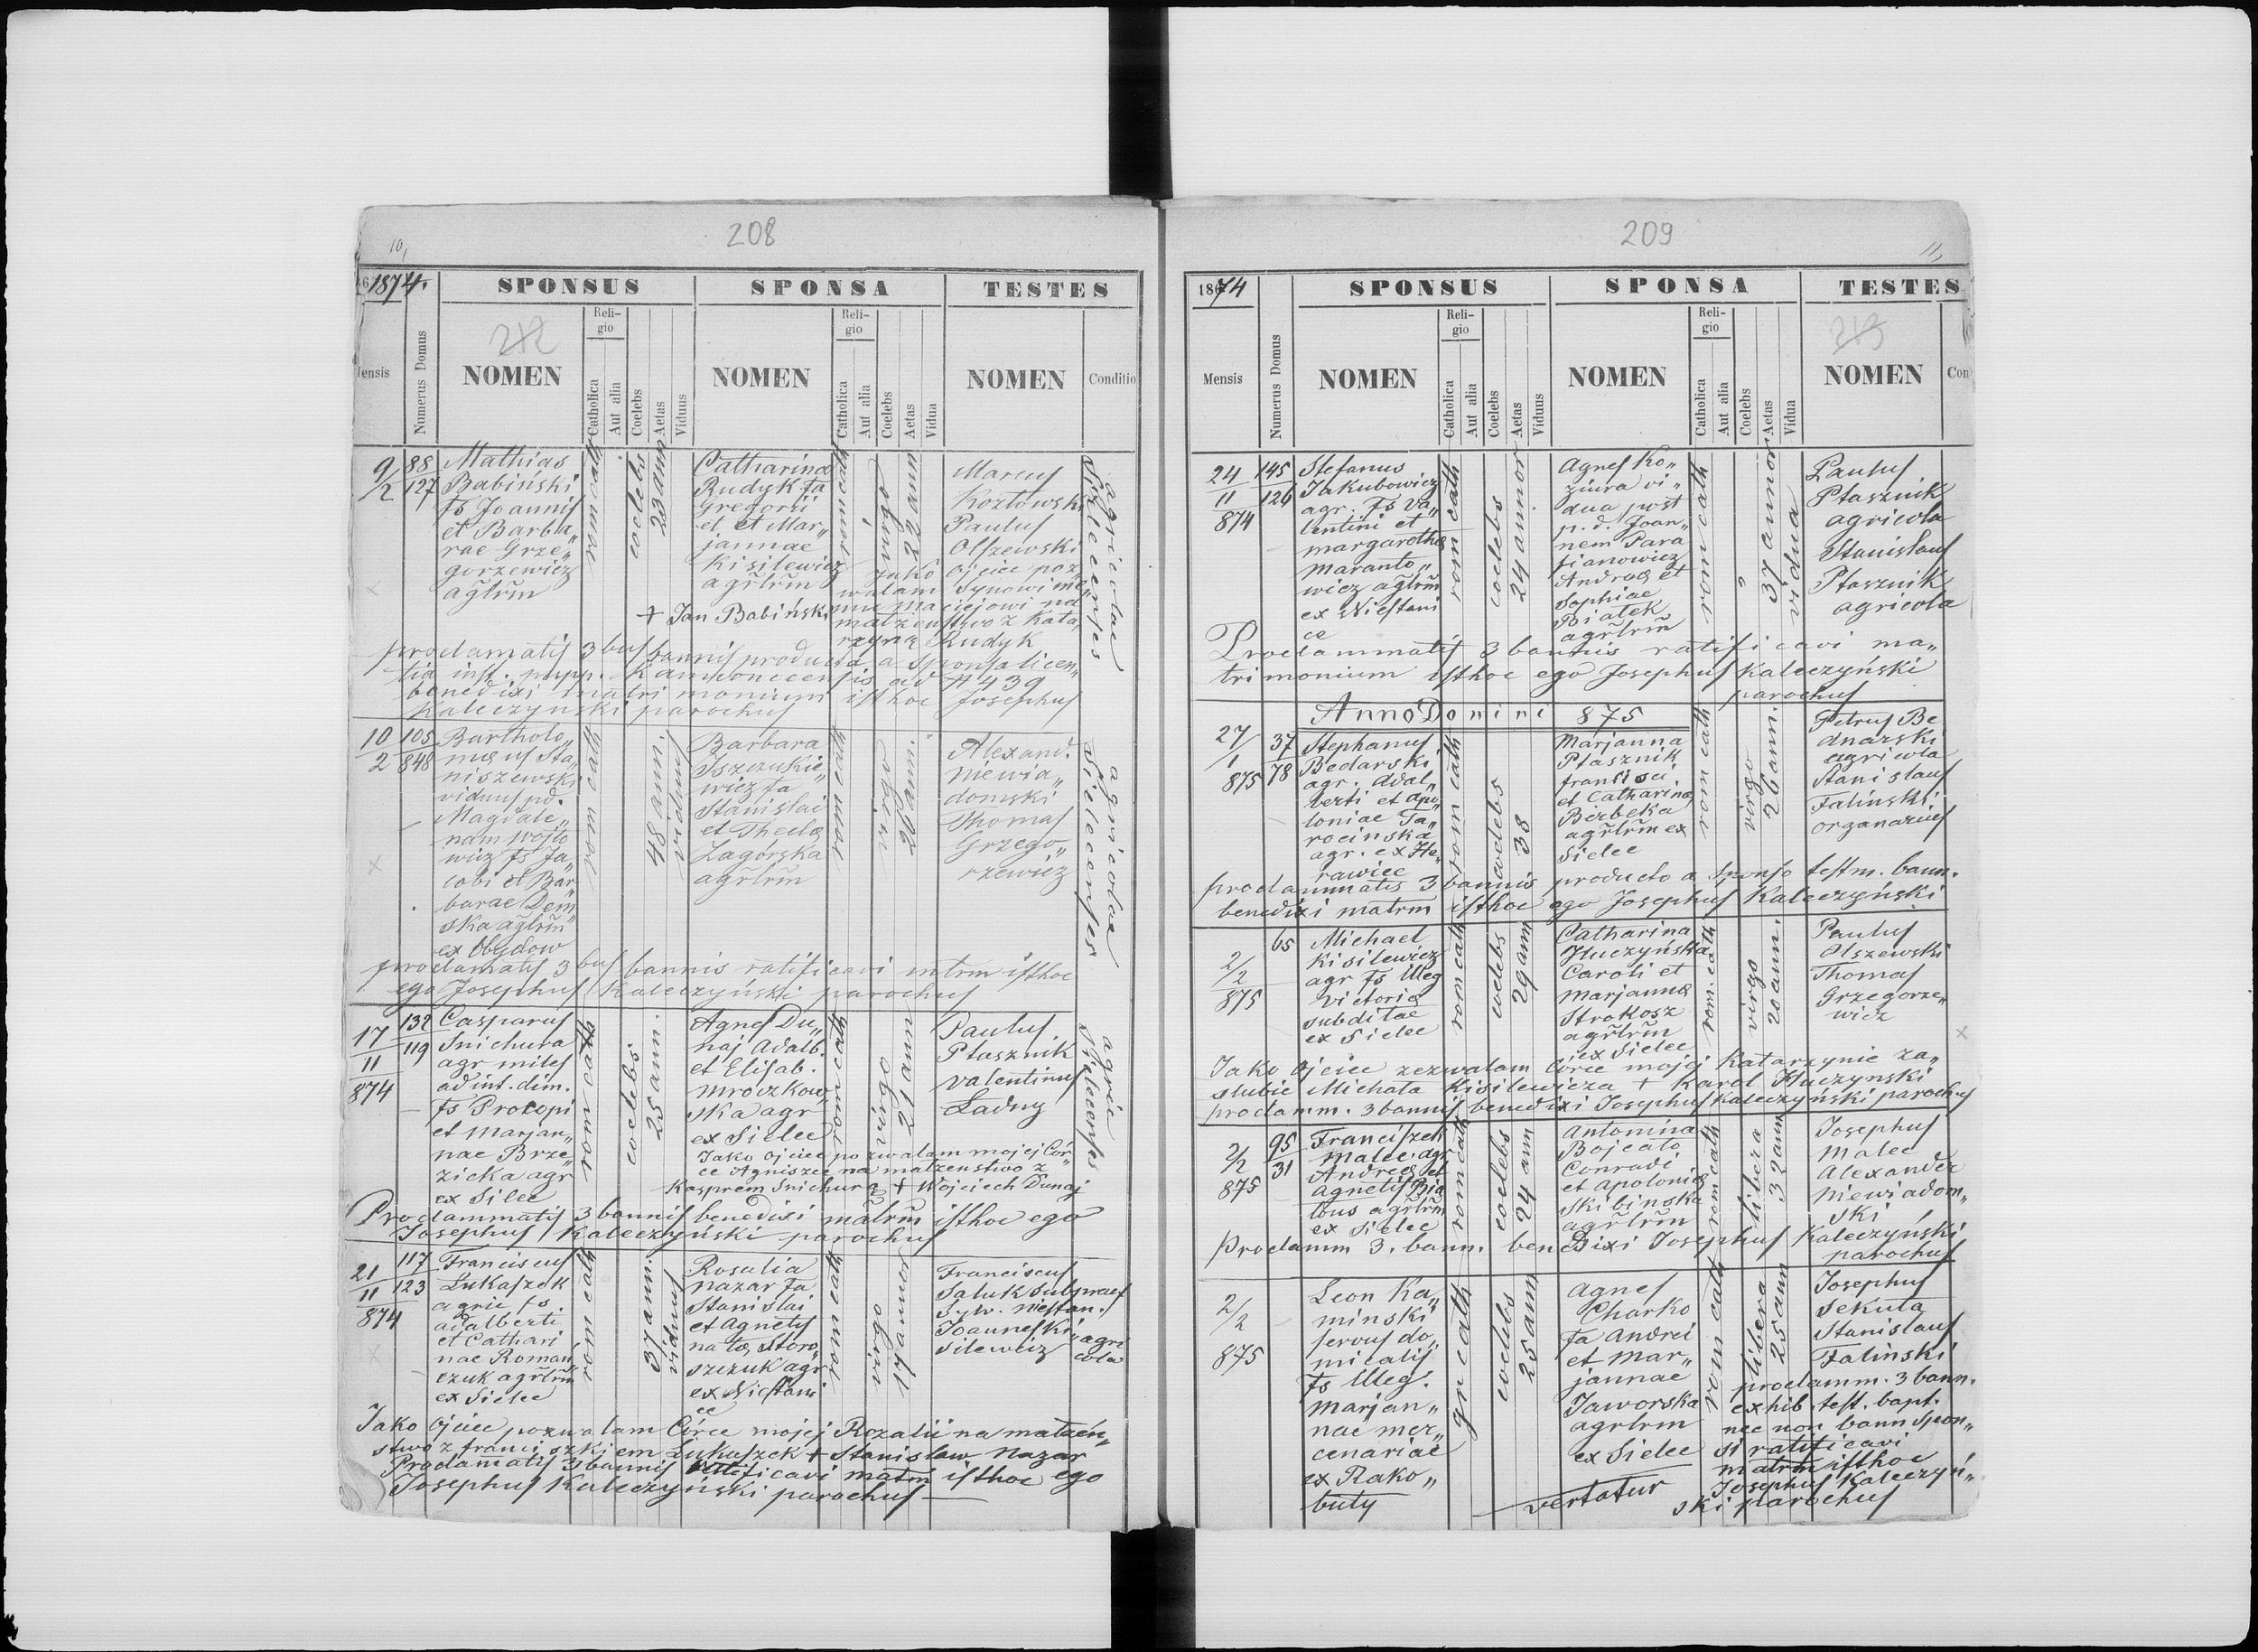 208
10,
1874.
SPONSUS
SPONSA
TESTES
Mensis
Numerus Domus
212
NOMEN
Religio
Catholica
Aut alia
Coelebs
Aetas
Viduus
NOMEN
Religio
Catholica
Aut alia
Coelebs
Aetas
Vidua
NOMEN
Conditio
9/2
88
127
Mathias
Babiński
fs Joannis
et Barba„
rae Grze„
gorzewicz
agrlrm
rom cath
coelebs
23 ann
Catharina
Rudyk fa
Gregorii
et et Mar„
jannae
Kisilewicz
agrlrm
rom cath
22 ann
Marcus
Kozłowski
Paulus
Olszewski
agricolae
Sielecenses
jako ojciec poz„
walam Synowi me„
+ Jan Babiński mu Maciejowi na
małżeństwo z Kata„
rzyną Rudyk
proclamatis 3bus bannis producta a Sponsa licen„
tia inst. pupp. Kamionecensis ad N 439
benedixi matrimonium isthoc Josephus
Kaleczynski parochus
10
2
105
848
Bartholo„
meus Sta„
niszewski
viduus pd.
Magdale„
nam Wojto
wicz fs Ja„
cobi et Bar„
barae Dem„
ska agrlrm
ex Obydow
rom cath
48 ann.
viduus
Barbara
Iszczukie„
wicz fa
Stanislai
et Theclae
Zagórska
agrlrm
rom cath
Alexand.
Niewia„
domski
Thomas
Grzego„
rzewicz
agricolae
Sielecenses
proclamatis 3bus bannis ratificavi mtrm isthoc
ego Josephus Kaleczyński parochus
17
11
874
132
119
Casparus
Snichura
agr miles
ad int. dim.
fs Procopi
et Marjan„
nae Brze„
zicka agr
ex Sielec
rom cath
coelebs
25 ann.
Agnes Du„
naj Adalb.
et Elisab.
Mroczkow„
ska agr
ex Sielec
rom cath
virgo
21 ann
Paulus
Ptasznik
Valentinus
Ładny
agric
Sielecenses
Jako ojciec pozwalam mojej Cór„
ce Agniszce na małżeństwo z
Kasprem Snichurą + Wojciech Dunaj
Proclammatis 3 bannis benedixi matrm isthoc ego
Josephus Kaleczyński parochus
21
11
874
117
123
Franciscus
Lukaszek
agric fs
adalberti
et Cathari
nae Roman„
czuk agrlrm
ex Sielec
rom cath
37 ann.
viduus
Rosalia
Nazar fa
Stanislai
et Agnetis
natae Storo„
szczuk agr
ex Niestani
ce
rom cath
virgo
17 annor
Franciscus
Saluk subpraef
Sylw. Niestan.
Joannes Ki„
silewicz
agri
cola
Jako Ojciec pozwalam Córce mojej Rozalii na małżeń„
stwo z Franciszkiem Lukaszek + Stanisław Nazar
Proclamatis 3 bannis ratificavi matrm isthoc ego
Josephus Kaleczyński parochus
209
11,
1874
SPONSUS
SPONSA
TESTES
Mensis
Numerus Domus
NOMEN
Religio
Catholica
Aut alia
Coelebs
Aetas
Viduus
NOMEN
Religio
Catholica
Aut alia
Coelebs
Aetas
Vidua
213
NOMEN
Con
24
11
874
145
126
Stefanus
Jakubowicz
agr. fs Va„
lentini et
Margarethae
Maranto„
wicz agrlrm
ex Niestani
ce
rom cath
coelebs
24 annor
Agnes Ko„
ziura vi„
dua post
p. d. Joan„
nem Para
fianowicz
Andreae et
Sophiae
Białek
agrlrm
rom cath
37 annor
vidua
Paulus
Ptasznik
agricola
Stanislaus
Ptasznik
agricola
Proclammatis 3 bannis ratificavi ma„
trimonium isthoc ego Josephus Kaleczyński
parochus
Anno Domini 875
27/
1
875
37
78
Stephanus
Bedarski
agr. Adal„
berti et Apo„
loniae Ta„
rocinska
agr. ex He„
rawiec
rom cath
coelebs
38
Marjanna
Ptasznik
Francisci
et Catharinae
Berbeka
agrlrm ex
Sielec
rom cath
virgo
26 ann.
Petrus Be
dnarski
agricola
Stanislaus
Faliński
organarius
proclammatis 3 bannis producto a Sponso testm. bann.
benedixi matrm isthoc ego Josephus Kaleczyński
2/
2
875
65
Michael
Kisilewicz
agr fs Illeg
Victoriae
subditae
ex Sielec
rom cath
coelebs
29 ann
Catharina
Huczyńska
Caroli et
Marjannae
Strokosz
agrlrm
ex Sielec
rom. cath
virgo
20 ann.
Paulus
Olszewski
Thomas
Grzegorze„
wicz
Jako Ojciec zezwalam Córce mojej Katarzynie za„
slubić Michała Kisilewicza + Karol Huczynski
proclamm. 3 bannis benedixi Josephus Kaleczyński parochus
2/2
875
95
31
Franciszek
Malec agr
Andreae et
Agnetis Bia
lous agrlrm
ex Sielec
rom cath
coelebs
24 ann
Antonina
Bojcato
Conradi
et Apoloniae
Skibinska
agrlrm
rom cath
libera
32 ann
Josephus
Malec
Alexander
Niewiadom„
ski
Proclamm 3. bann. benedixi Josephus Kaleczyński
parochus
2/2
875
Leon Ka„
minski
servus do„
micalis
fs Illeg.
Marjan„
nae mer„
cenariae
ex Rako„
buty
gr cath
coelebs
25 ann
Agnes
Charko
fa Andrei
et Mar„
jannae
Jaworska
agrlrm
ex Sielec
rom cath
libera
25 ann
Josephus
Sekuta
Stanislaus
Faliński
proclamm. 3 bann.
exhib. test. bapt.
nec non bann Spon„
si ratificavi
matrm isthoc
Josephus Kaleczyń„
ski parochus
vertatur